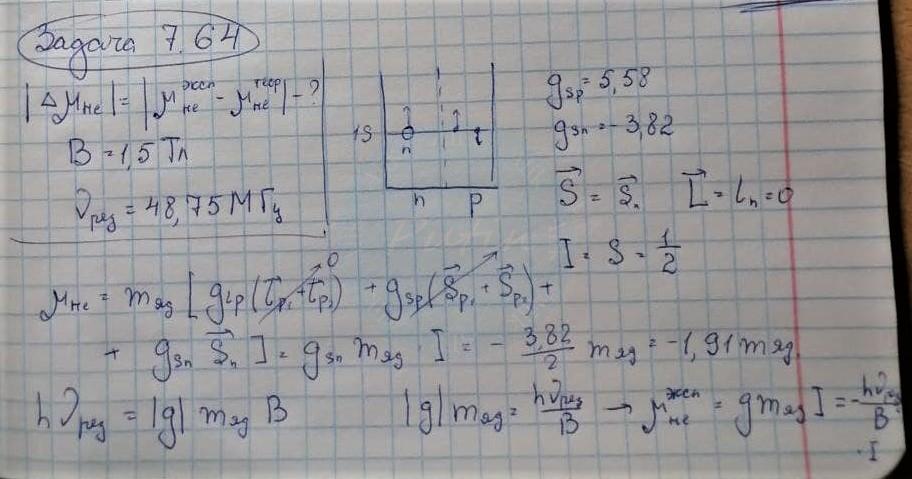 Задача 7.64
|Δμ_не| = |μ_не^эксп - μ_не^теор| - ?
B = 1,5 Тл
ν_рез = 48,75 МГц
1S
n
n p
g_sp = 5,58
g_sn = -3,82
S⃗ = S⃗_n L⃗ = l_n = 0
I = S = 1/2
μ_не = m_яд [ g_lp (l⃗_p₁ + l⃗_p₂) → 0 + g_sp (S⃗_p₁ + S⃗_p₂) +
+ g_sn S⃗_n ] = g_sn m_яд · I = - 3,82/2 m_яд = -1,91 m_яд
hν_рез = |g| m_яд B |g| m_яд = hν_рез/B → μ_не^эксп = g m_яд I = - hν_рез/B
· I